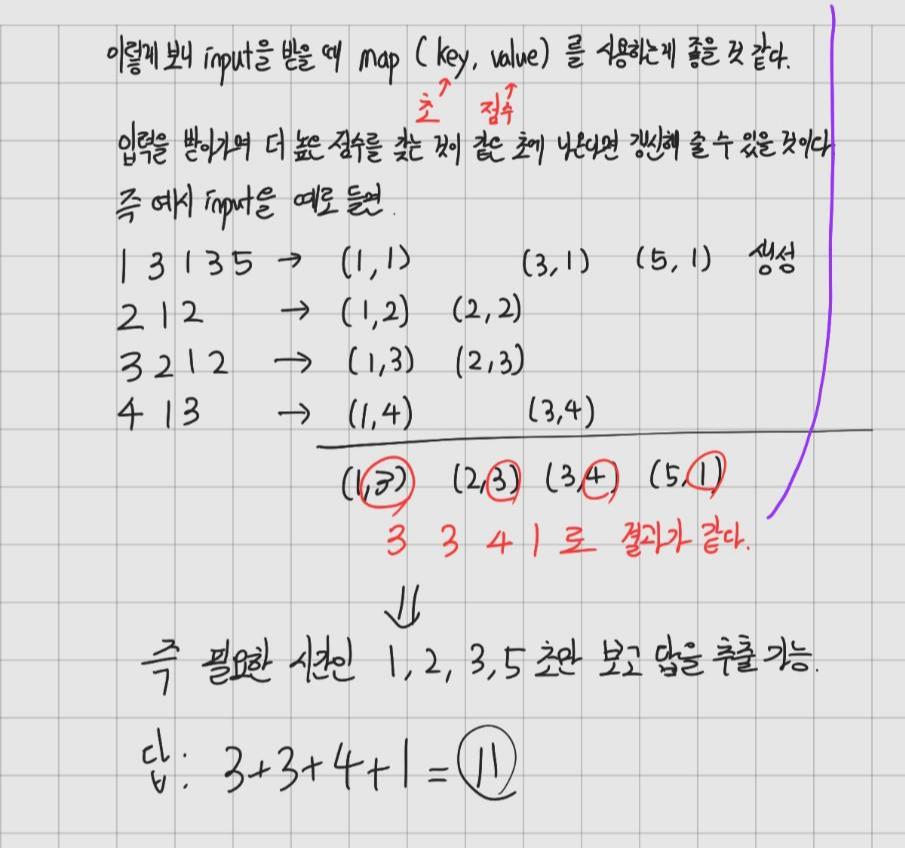 이렇게 보니 input을 받을 때 map (key, value) 를 사용하는게 좋을 것 같다.
초 점수
입력을 받아가며 더 높은 점수를 갖는 것이 같은 초에 나온다면 갱신해 줄 수 있을 것이다
즉 예시 input을 예로 들면.
1 3 1 3 5 → (1,1) (3,1) (5,1) 생성
2 1 2 → (1,2) (2,2)
3 2 1 2 → (1,3) (2,3)
4 1 3 → (1,4) (3,4)
(1,3) (2,3) (3,4) (5,1)
3 3 4 1 로 결과가 같다.
⇓
즉 필요한 시간인 1, 2, 3, 5 초만 보고 답을 추출 가능.
답: 3+3+4+1 = 11